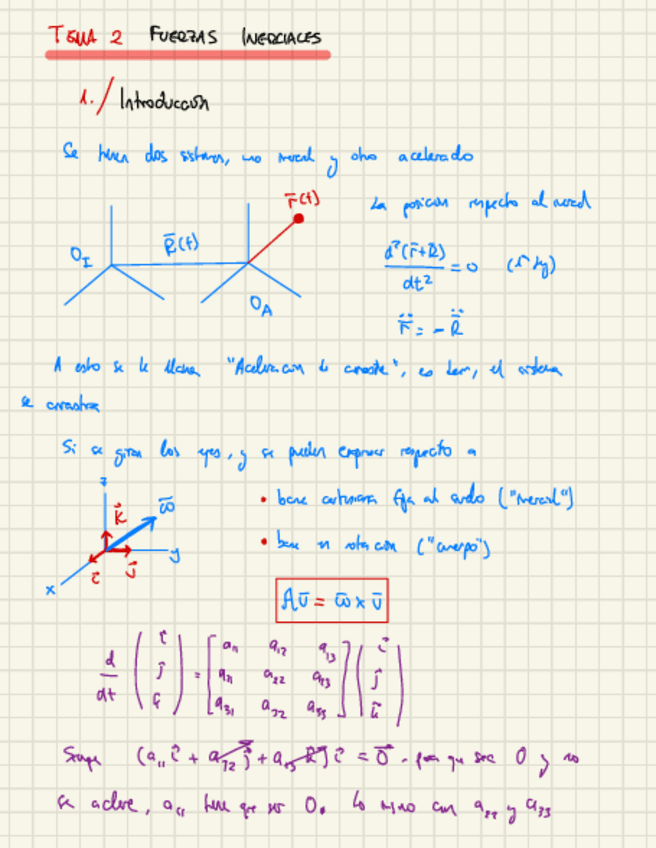 TEMA 2 FUERZAS INERCIALES
1./ Introducción
Se tienen dos sistemas, uno inercial y otro acelerado
r̄(t)
R̄(t)
O_I
O_A
La posición respecto al inercial
d²(r̄+R̄)/dt² = 0 (1ª ley)
r̈ = - R̈
A esto se le llama "Aceleración de arrastre", es decir, el sistema
se arrastra
Si se giran los ejes, y se pueden expresar respecto a
z
k⃗ ω̄
y
i⃗ j⃗
x
• base cartesiana fija al suelo ("inercial")
• base en rotación ("cuerpo")
Aῡ = ω̄ x ῡ
d/dt (i⃗ j⃗ k⃗) = [a₁₁ a₁₂ a₁₃ a₂₁ a₂₂ a₂₃ a₃₁ a₃₂ a₃₃] (i⃗ j⃗ k⃗)
(a₁₁ i⃗ + a₁₂ j⃗ + a₁₃ k⃗) i⃗ = 0⃗ para que sea 0 y no
se , a₁₁ tiene que ser 0. Lo mismo con a₂₂ y a₃₃